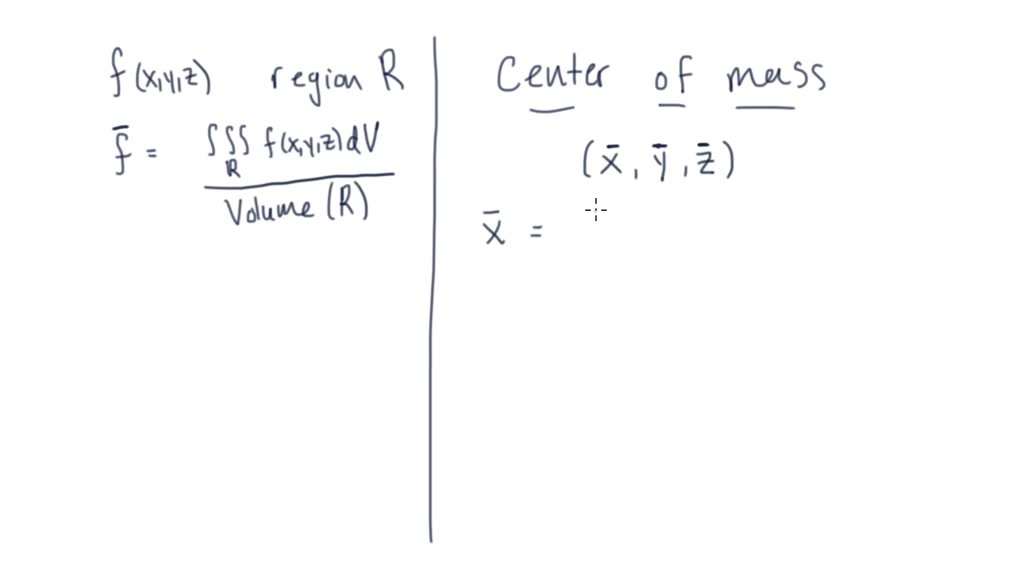 f(x,y,z) region R
f̄ = ∫∫∫ f(x,y,z)dV
R
Volume (R)
Center of mass
(x̄, ȳ, z̄)
x̄ =